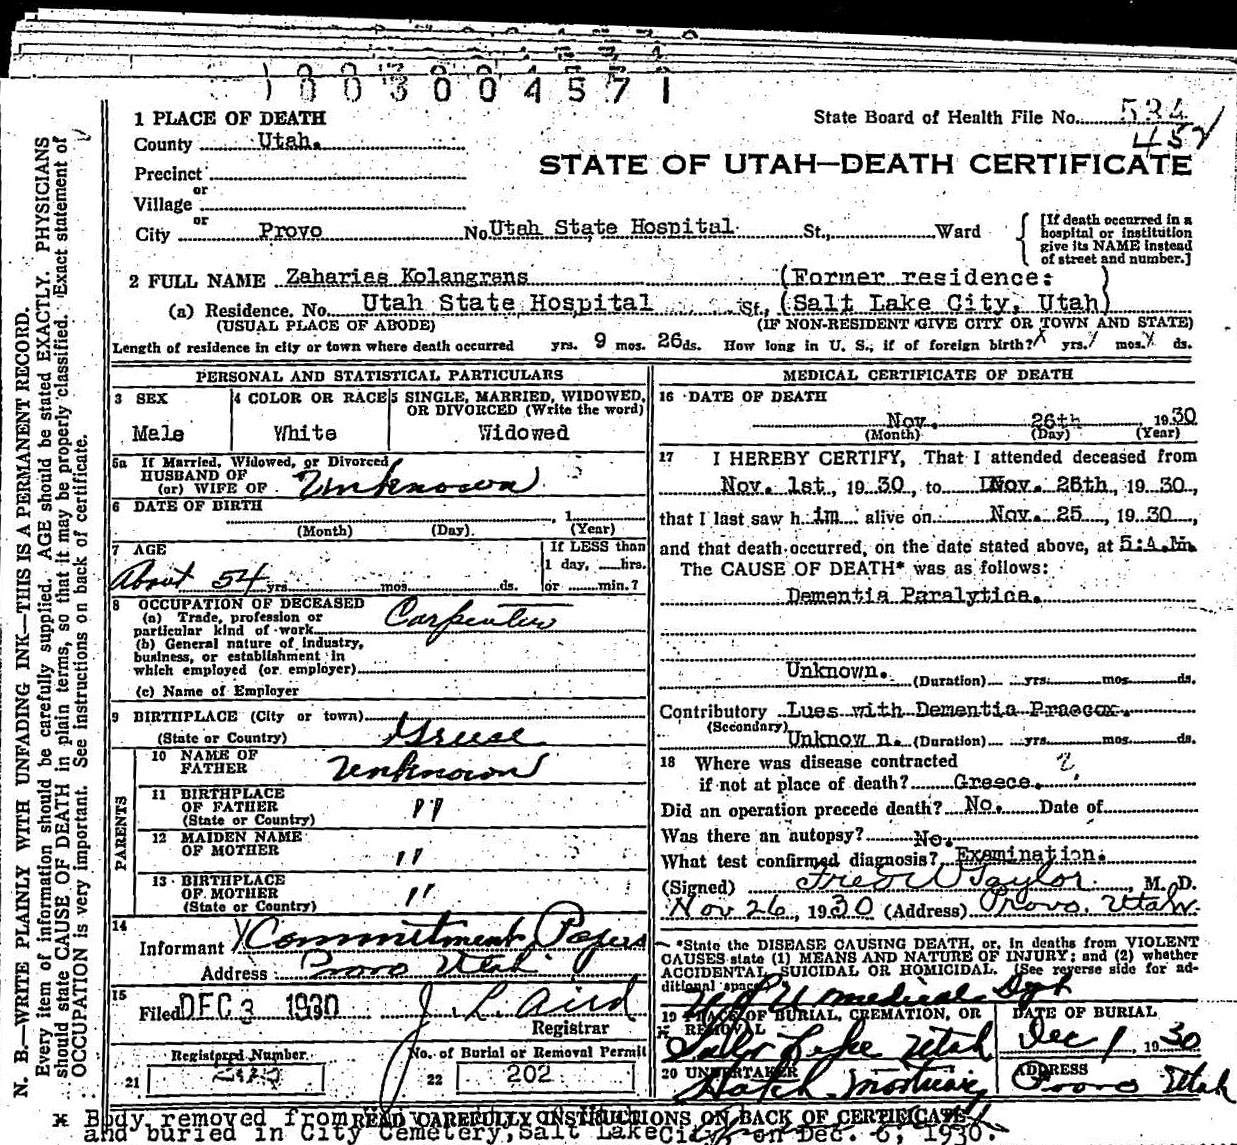 1003004571
1 PLACE OF DEATH
State Board of Health File No. 534
452
County Utah.
STATE OF UTAH—DEATH CERTIFICATE
Precinct
or
Village
or
City Provo No Utah State Hospital St., Ward
[If death occurred in a
hospital or institution
give its NAME instead
of street and number.]
2 FULL NAME Zaharias Kolangrans (Former residence:
(a) Residence. No. Utah State Hospital St., (Salt Lake City, Utah)
(USUAL PLACE OF ABODE) (IF NON-RESIDENT GIVE CITY OR TOWN AND STATE)
Length of residence in city or town where death occurred yrs. 9 mos. 26 ds. How long in U. S., if of foreign birth? yrs. mos. ds.
PERSONAL AND STATISTICAL PARTICULARS
3 SEX
Male
4 COLOR OR RACE
White
5 SINGLE, MARRIED, WIDOWED,
OR DIVORCED (Write the word)
Widowed
5a If Married, Widowed, or Divorced
HUSBAND OF
(or) WIFE OF Unknown
6 DATE OF BIRTH
, 1
(Month) (Day) (Year)
7 AGE
About 54 yrs. mos. ds.
If LESS than
1 day, hrs.
or min.?
8 OCCUPATION OF DECEASED
(a) Trade, profession or
particular kind of work Carpenter
(b) General nature of industry,
business, or establishment in
which employed (or employer)
(c) Name of Employer
9 BIRTHPLACE (City or town)
(State or Country) Greece
PARENTS
10 NAME OF
FATHER Unknown
11 BIRTHPLACE
OF FATHER "
(State or Country)
12 MAIDEN NAME
OF MOTHER "
13 BIRTHPLACE
OF MOTHER "
(State or Country)
14
Informant Commitment Papers
Address Provo Utah
15
Filed DEC 3 1930 J. L. Aird
Registrar
Registered Number
21
No. of Burial or Removal Permit
22 202
MEDICAL CERTIFICATE OF DEATH
16 DATE OF DEATH
Nov. 26th 1930
(Month) (Day) (Year)
17 I HEREBY CERTIFY, That I attended deceased from
Nov. 1st, 1930, to Nov. 26th, 1930,
that I last saw him alive on Nov. 25, 1930,
and that death occurred, on the date stated above, at 5:A.M.
The CAUSE OF DEATH* was as follows:
Dementia Paralytica.
Unknown. (Duration) yrs. mos. ds.
Contributory Lues with Dementia Praecox.
(Secondary)
Unknow n. (Duration) yrs. mos. ds.
18 Where was disease contracted
if not at place of death? Greece. ?
Did an operation precede death? No. Date of
Was there an autopsy? No.
What test confirmed diagnosis? Examination.
(Signed) Fred W Taylor, M. D.
Nov 26, 1930 (Address) Provo, Utah.
*State the DISEASE CAUSING DEATH, or, in deaths from VIOLENT
CAUSES state (1) MEANS AND NATURE OF INJURY; and (2) whether
ACCIDENTAL, SUICIDAL OR HOMICIDAL. (See reverse side for ad-
ditional space.)
U of U medical Dept
19 PLACE OF BURIAL, CREMATION, OR
REMOVAL
Salt Lake Utah
DATE OF BURIAL
Dec 1, 1930
20 UNDERTAKER
Hatch Mortuary
ADDRESS
Provo Utah
READ CAREFULLY INSTRUCTIONS ON BACK OF CERTIFICATE
* Body removed from
and buried in City Cemetery, Salt Lake City, on Dec. 6, 1930.
N. B.—WRITE PLAINLY WITH UNFADING INK—THIS IS A PERMANENT RECORD.
Every item of information should be carefully supplied. AGE should be stated EXACTLY. PHYSICIANS
should state CAUSE OF DEATH in plain terms, so that it may be properly classified. Exact statement of
OCCUPATION is very important. See instructions on back of certificate.